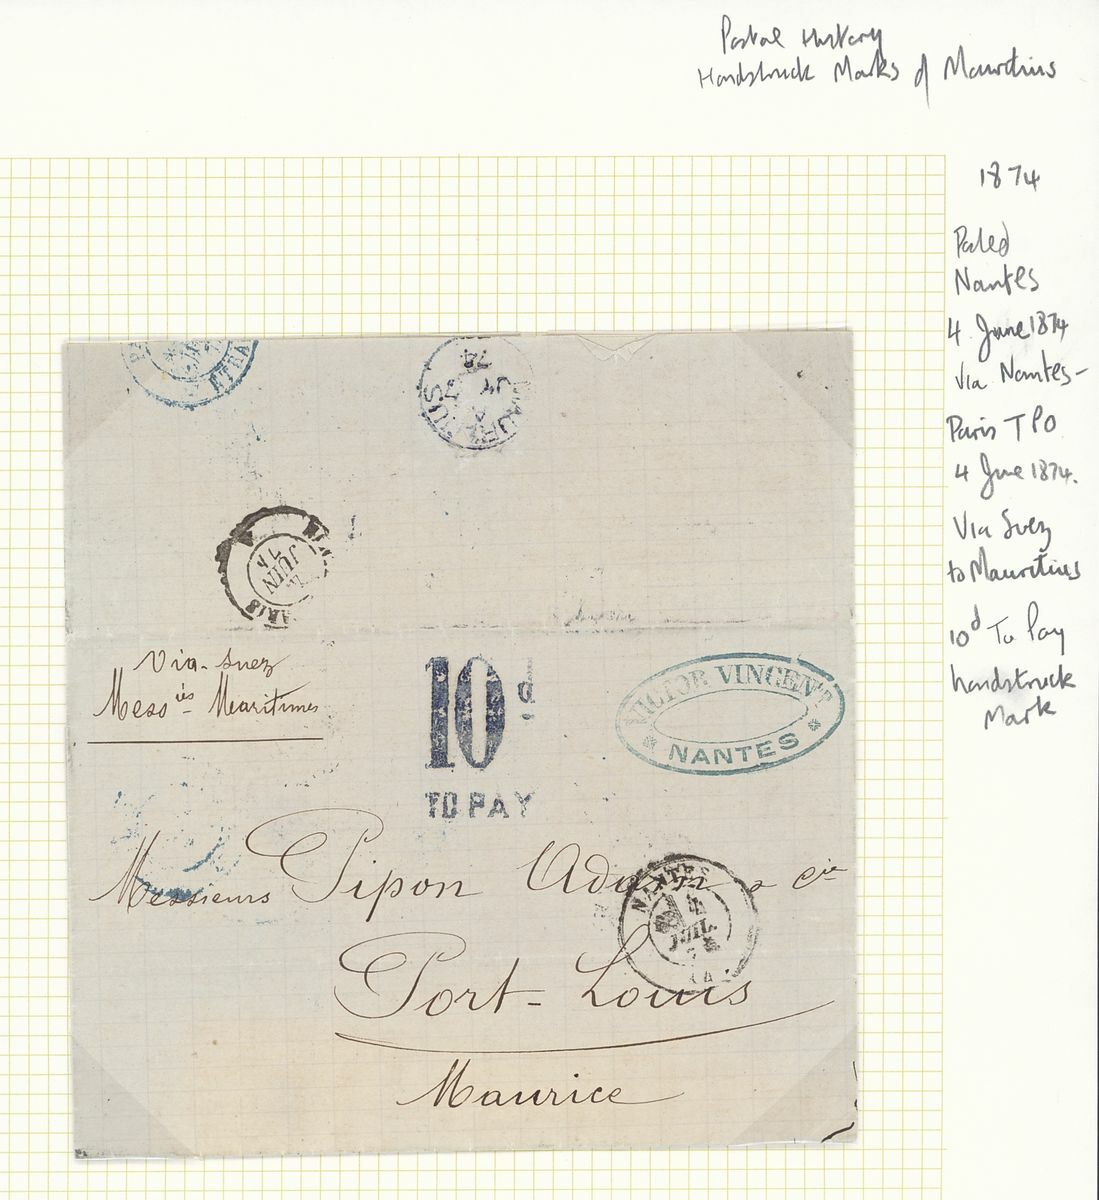 Postal History
Handstruck Marks of Mauritius
1874
Paled
Nantes
4 June 1874
Via Nantes-
Paris TPO
4 June 1874.
Via Suez
to Mauritius
10d To Pay
handstruck
Mark
ETRA
MAURITIUS
A
JY 7
74
PARIS
JUIN
74
Via-Suez
Messies Maritimes
10d
TO PAY
VICTOR VINCENT
NANTES
Messieurs Pipon Adam & Cie
NANTES
4
JUIL
Port-Louis
Maurice